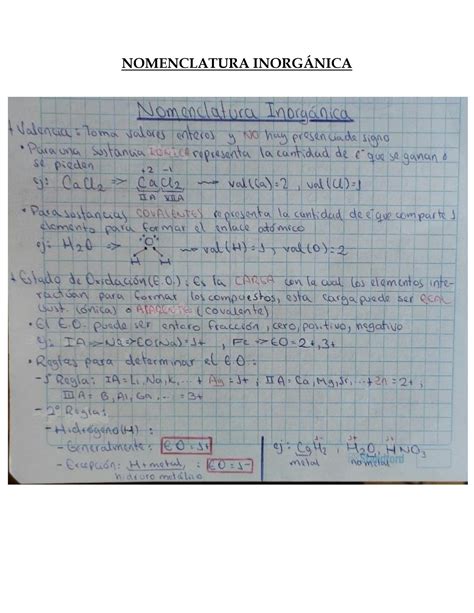 NOMENCLATURA INORGÁNICA
Nomenclatura Inorgánica
+ Valencia = Toma valores enteros y NO hay presencia de signo
• Para una sustancia IÓNICA representa la cantidad de e⁻ que se ganan o
se pierden
ej: CaCl2 => CaCl2 → val(Ca)=2, val(Cl)=1
+2 -1
IIA VIIA
• Para sustancias COVALENTES representa la cantidad de e⁻ que comparte 1
elemento para formar el enlace atómico
ej: H2O => H O H → val(H)=1, val(O)=2
+ Estado de Oxidación (E.O.): Es la CARGA con la cual los elementos inte-
ractúan para formar los compuestos, esta carga puede ser REAL
(sust. iónica) o APARENTE (covalente)
• El E.O. puede ser entero fracción, cero, positivo, negativo
ej: IA => Na => EO(Na)=1+, Fe => EO=2+,3+
• Reglas para determinar el E.O.:
- 1° Regla: IA=Li, Na, K, ... + Ag = 1+; IIA=Ca, Mg, Sr, ... + Zn = 2+,
IIIA = B, Al, Ga, ... = 3+
- 2° Regla:
- Hidrógeno(H):
- Generalmente: EO=1+
- Excepción: H+metal: EO=1-
hidruro metálico
ej: H2, H2O, HNO3
metal no metal